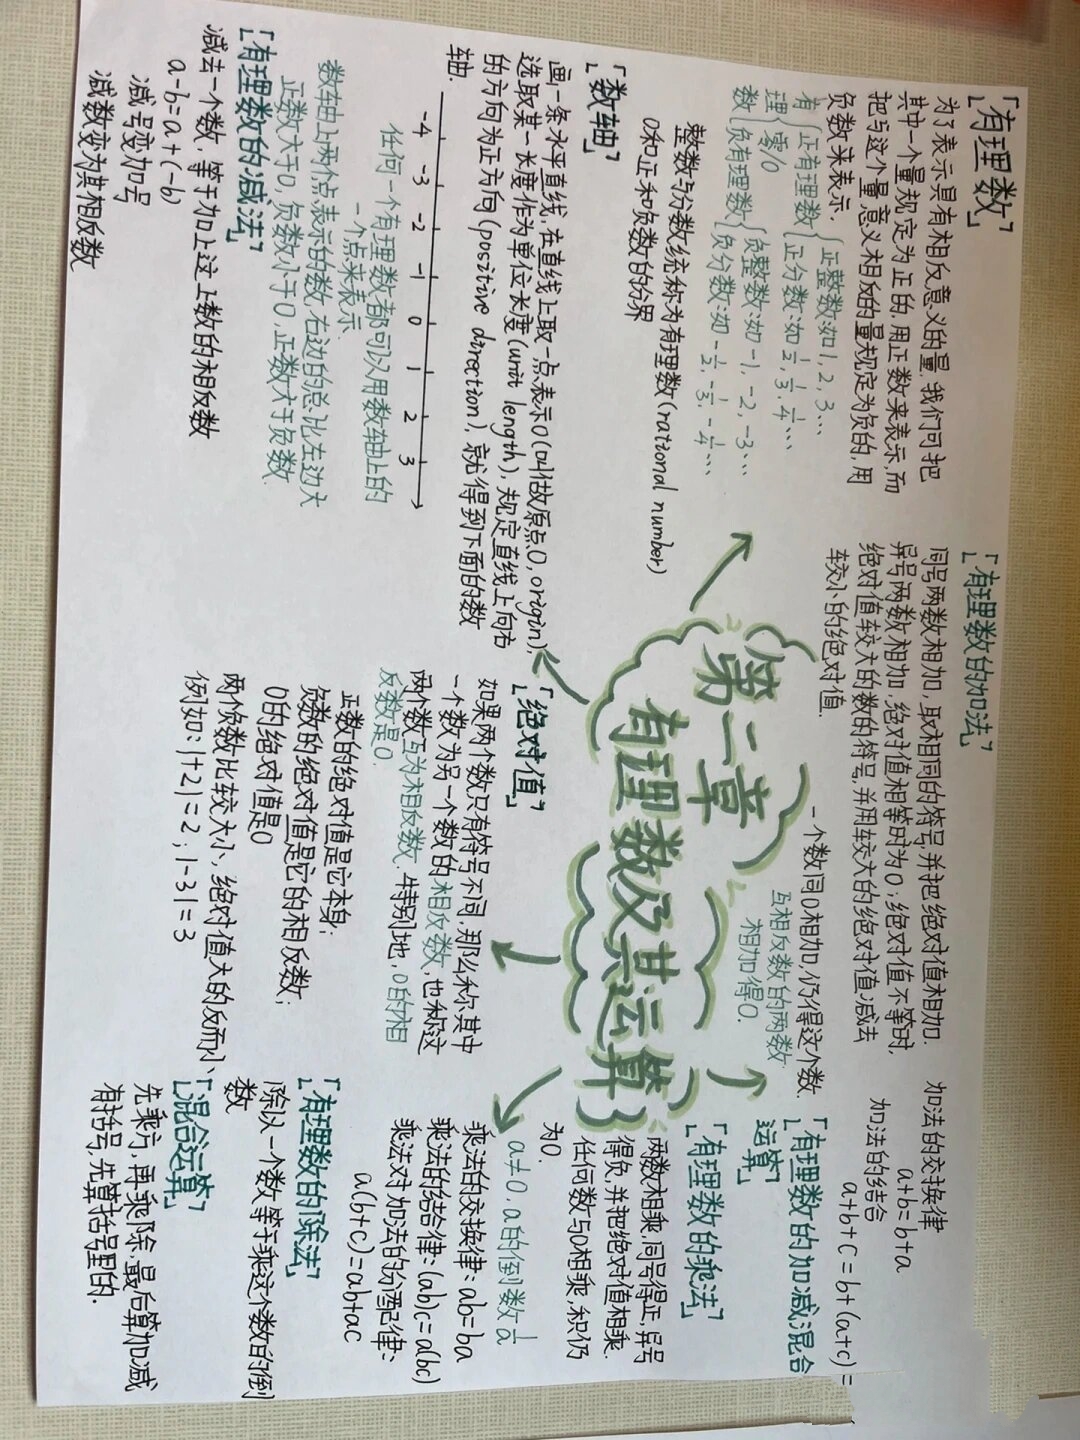 第二章
有理数及其运算
「有理数」
为了表示具有相反意义的量,我们可把
其中一个量规定为正的,用正数来表示,而
把与这个量意义相反的量规定为负的,用
负数来表示.
有理数
正有理数
正整数:如1,2,3…
正分数:如½,⅓,¼…
零/0
负有理数
负整数:如-1,-2,-3…
负分数:如-½,-⅓,-¼…
整数与分数统称为有理数(rational number)
0和正和负数的分界
「数轴」
画一条水平直线,在直线上取一点表示0(叫做原点0,origin),
选取某一长度作为单位长度(unit length),规定直线上向右
的方向为正方向(positive direction),就得到下面的数
轴.
-4 -3 -2 -1 0 1 2 3
任何一个有理数都可以用数轴上的
一个点来表示.
数轴上两个点表示的数,右边的总比左边大
正数大于0,负数小于0,正数大于负数.
「有理数的减法」
减去一个数,等于加上这上数的相反数
a-b=a+(-b)
减号变加号
减数变为其相反数
「有理数的加法」
同号两数相加,取相同的符号,并把绝对值相加.
异号两数相加,绝对值相等时为0;绝对值不等时,
绝对值较大的数的符号,并用较大的绝对值减去
较小的绝对值.
一个数同0相加,仍得这个数.
互相反数的两数
相加得0.
「绝对值」
如果两个数只有符号不同,那么称其中
一个数为另一个数的相反数,也称这
两个数互为相反数.特别地,0的相
反数是0.
正数的绝对值是它本身;
负数的绝对值是它的相反数;
0的绝对值是0
两个负数比较大小、绝对值大的反而小、
例如:|+2|=2;|-3|=3
加法的交换律
a+b=b+a
加法的结合
a+b+c=b+(a+c)=
「有理数的加减混合
运算」
「有理数的乘法」
两数相乘,同号得正,异号
得负,并把绝对值相乘.
任何数与0相乘,积仍
为0.
a≠0,a的倒数1/a
乘法的交换律:ab=ba
乘法的结合律:(ab)c=a(bc)
乘法对加法的分配律:
a(b+c)=ab+ac
「有理数的除法」
除以一个数等于乘这个数的倒
数
「混合运算」
先乘方,再乘除,最后算加减
有括号,先算括号里的.